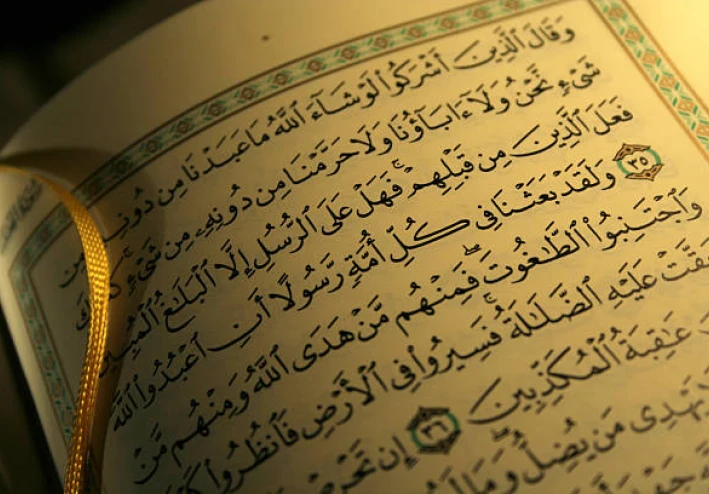 وَقَالَ ٱلَّذِينَ أَشْرَكُوا۟ لَوْ شَآءَ ٱللَّهُ مَا عَبَدْنَا مِن دُونِهِۦ مِن
شَىْءٍ نَّحْنُ وَلَآ ءَابَآؤُنَا وَلَا حَرَّمْنَا مِن دُونِهِۦ مِن شَىْءٍ ۚ كَذَٰلِكَ
فَعَلَ ٱلَّذِينَ مِن قَبْلِهِمْ ۚ فَهَلْ عَلَى ٱلرُّسُلِ إِلَّا ٱلْبَلَٰغُ ٱلْمُبِينُ
٣٥ وَلَقَدْ بَعَثْنَا فِى كُلِّ أُمَّةٍ رَّسُولًا أَنِ ٱعْبُدُوا۟ ٱللَّهَ
وَٱجْتَنِبُوا۟ ٱلطَّٰغُوتَ ۖ فَمِنْهُم مَّنْ هَدَى ٱللَّهُ وَمِنْهُم مَّنْ
حَقَّتْ عَلَيْهِ ٱلضَّلَٰلَةُ ۚ فَسِيرُوا۟ فِى ٱلْأَرْضِ فَٱنظُرُوا۟
عَٰقِبَةُ ٱلْمُكَذِّبِينَ ٣٦ إِن تَحْرِصْ
يَهْدِى مَن يُضِلُّ ۖ وَمَا